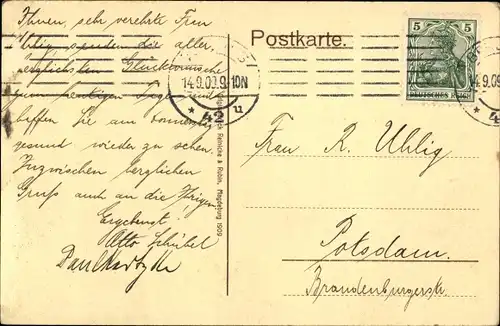 Ihnen, sehr verehrte Frau
Uhlig, senden die aller
herzlichsten Glückwünsche
zum heutigen Tage und
hoffen Sie am Donnerstag
gesund wieder zu sehen.
Inzwischen herzlichen
Gruß auch an die Ihrigen
Ergebenst
Otto Schübel
Paul
Postkarte.
14.9.09.9-10N
* 42 u
5 5
DEUTSCHES REICH
14.9.09
Reinicke & Rubin, Magdeburg 1909
Frau R. Uhlig
Potsdam.
Brandenburgerstr.